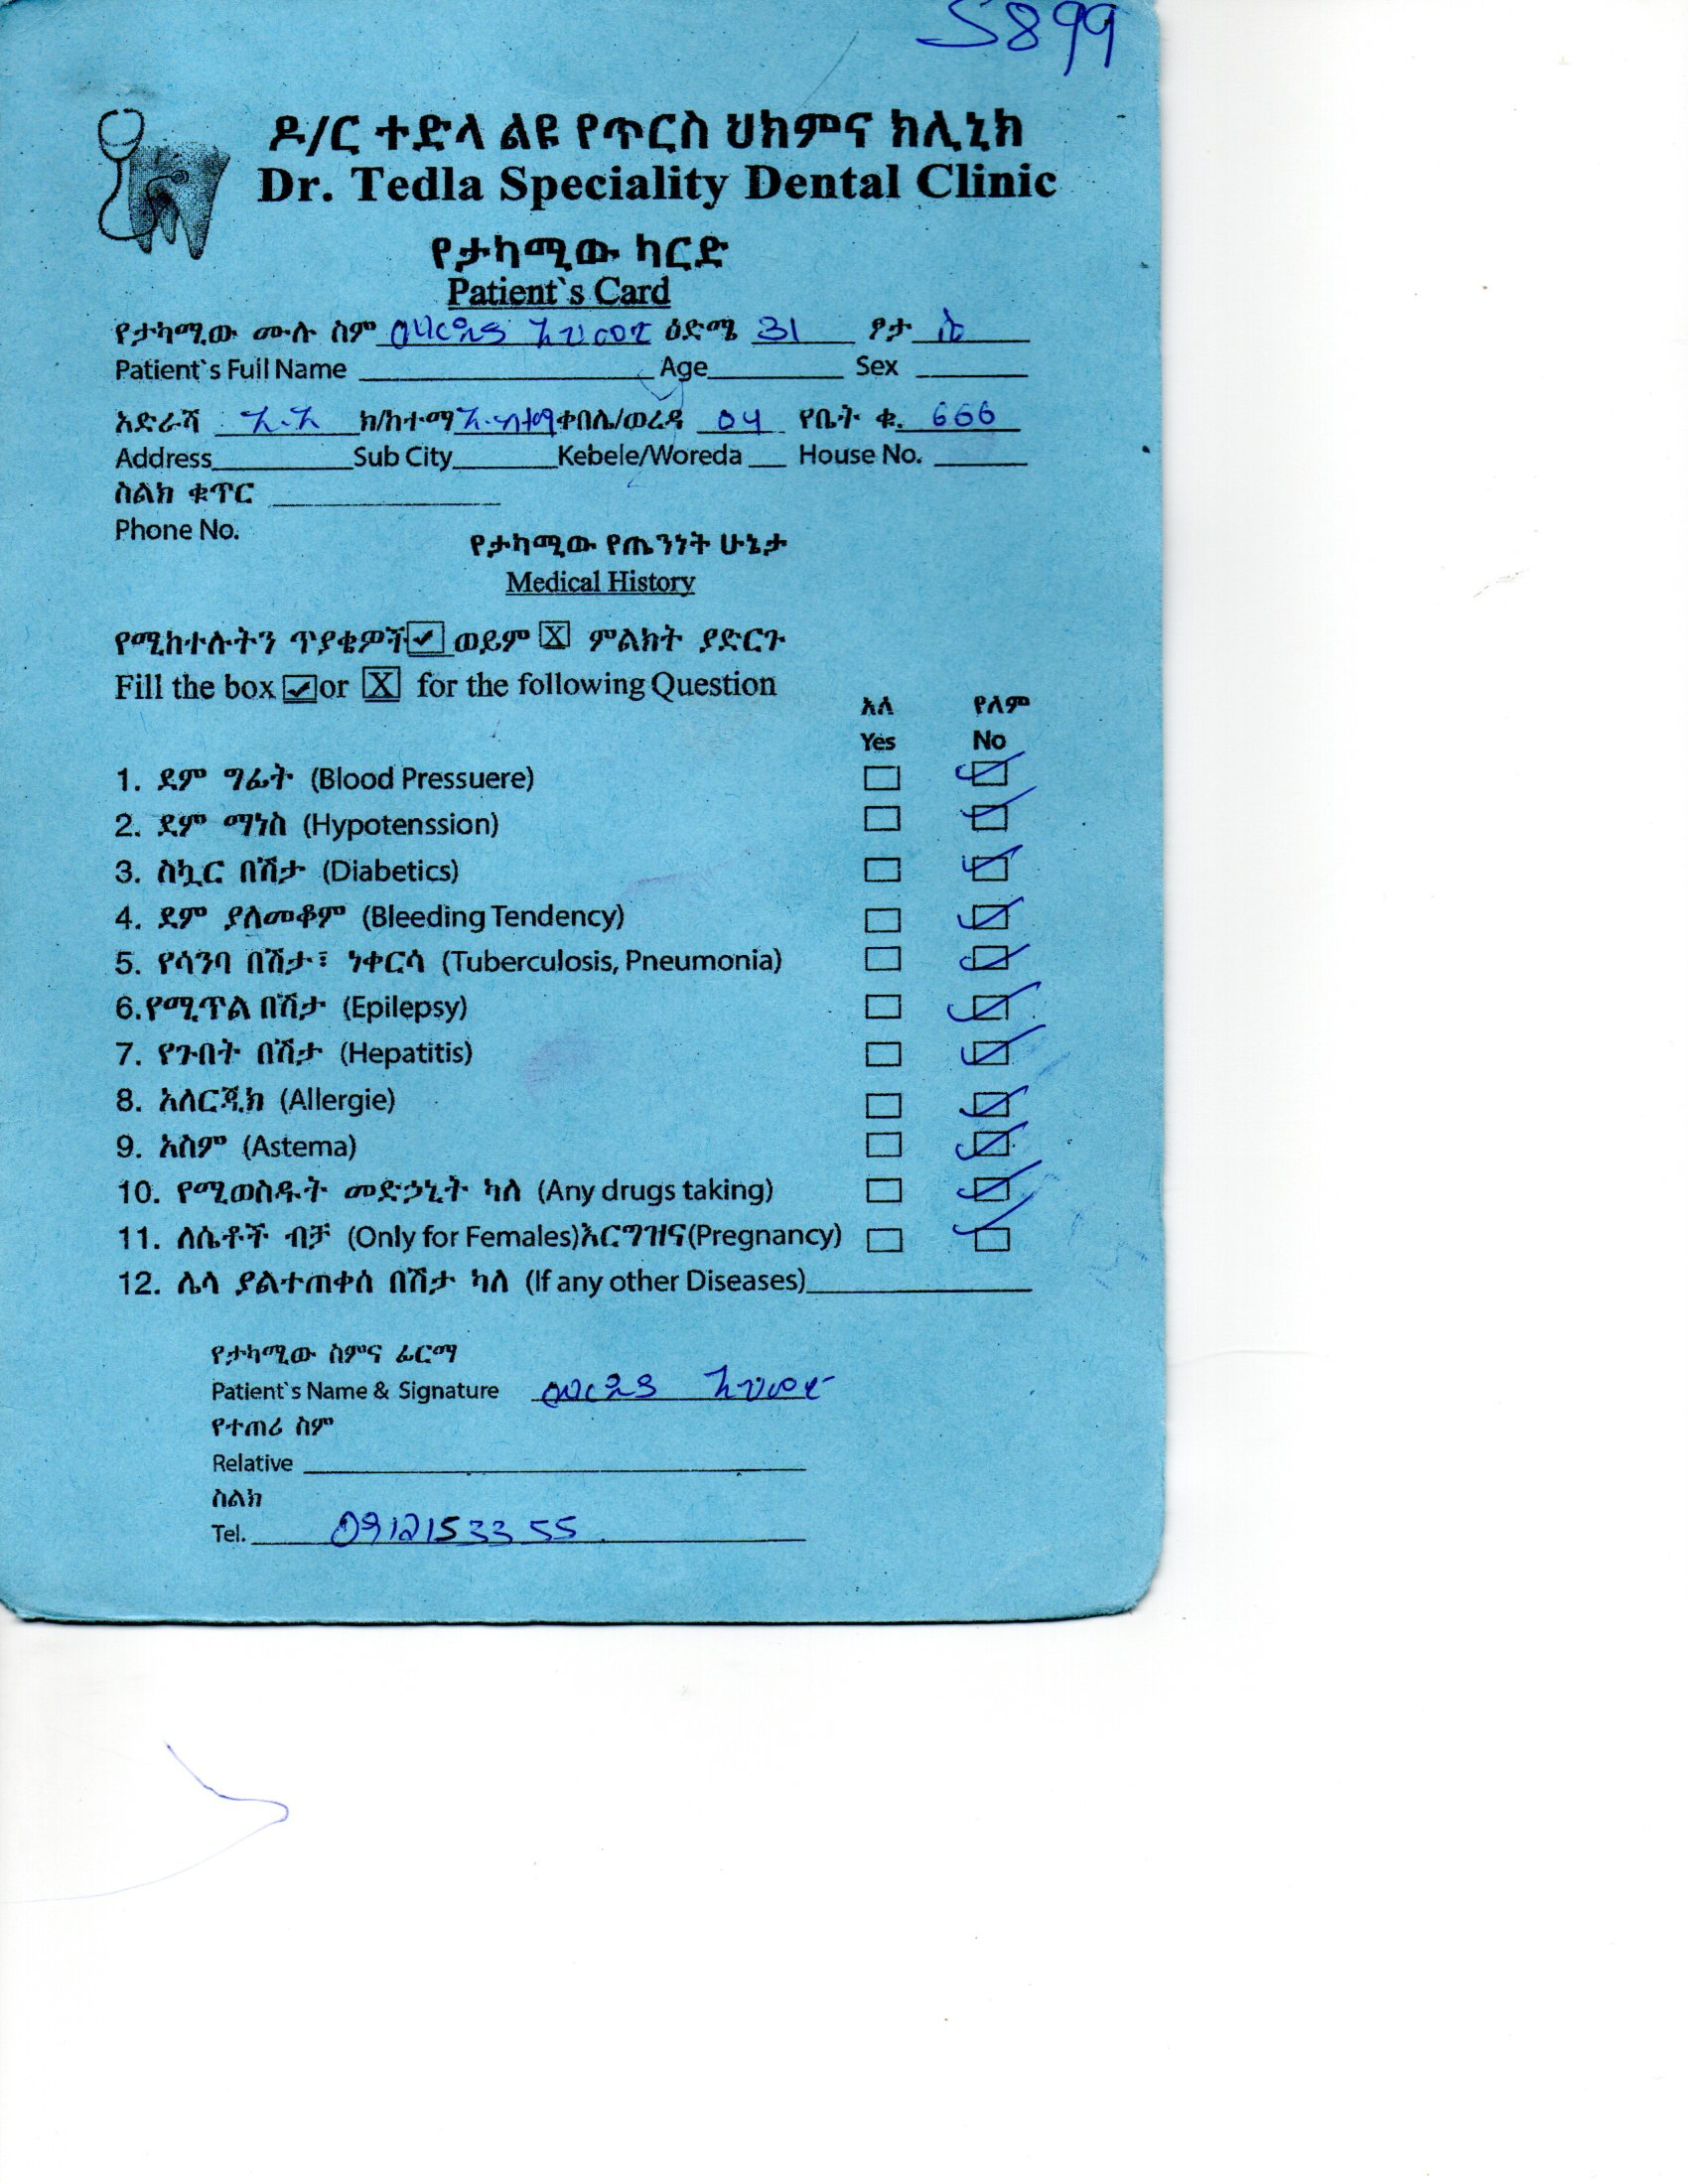 5899
ዶ/ር ተድላ ልዩ የጥርስ ህክምና ክሊኒክ
Dr. Tedla Speciality Dental Clinic
የታካሚው ካርድ
Patient`s Card
የታካሚው ሙሉ ስም አህመድ ዕድሜ 31 ፆታ ሴ
Patient`s Full Name Age Sex
አድራሻ አ.አ ክ/ከተማ አ.ከተማ ቀበሌ/ወረዳ 04 የቤት ቁ. 666
Address Sub City Kebele/Woreda House No.
ስልክ ቁጥር
Phone No.
የታካሚው የጤንነት ሁኔታ
Medical History
የሚከተሉትን ጥያቄዎች ✓ ወይም X ምልክት ያድርጉ
Fill the box ✓ or X for the following Question
አለ የለም
Yes No
1. ደም ግፊት (Blood Pressuere)
2. ደም ማነስ (Hypotenssion)
3. ስኳር በሽታ (Diabetics)
4. ደም ያለመቆም (Bleeding Tendency)
5. የሳንባ በሽታ፣ ነቀርሳ (Tuberculosis, Pneumonia)
6.የሚጥል በሽታ (Epilepsy)
7. የጉበት በሽታ (Hepatitis)
8. አለርጂክ (Allergie)
9. አስም (Astema)
10. የሚወስዱት መድኃኒት ካለ (Any drugs taking)
11. ለሴቶች ብቻ (Only for Females)እርግዝና(Pregnancy)
12. ሌላ ያልተጠቀሰ በሽታ ካለ (If any other Diseases)
የታካሚው ስምና ፊርማ
Patient`s Name & Signature አህመድ
የተጠሪ ስም
Relative
ስልክ
Tel. 0912153355